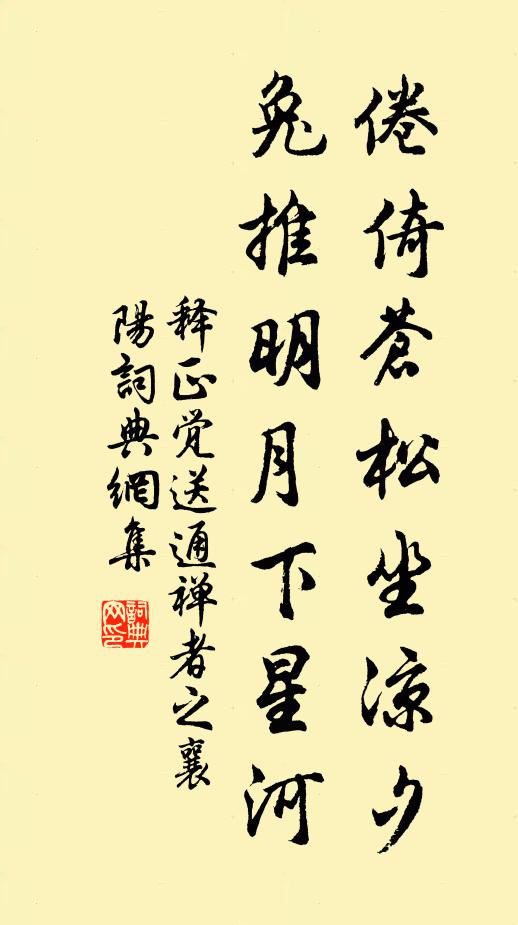 倦倚苍松坐凉夕
兔推明月下星河
释正觉送通禅者之襄
陽詞典網集
詞典
网印